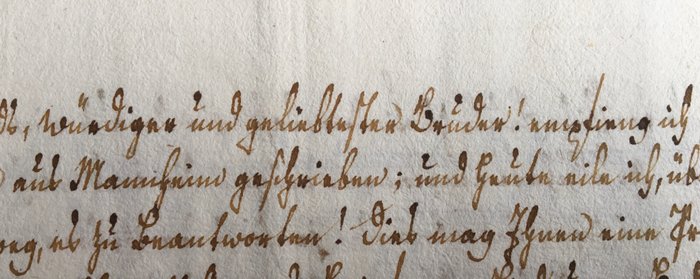 würdiger und geliebtester Bruder! empfieng ich
aus Mannheim geschrieben; und heute eile ich, üb
weg, es zu beantworten! Dies mag Ihnen eine Pr